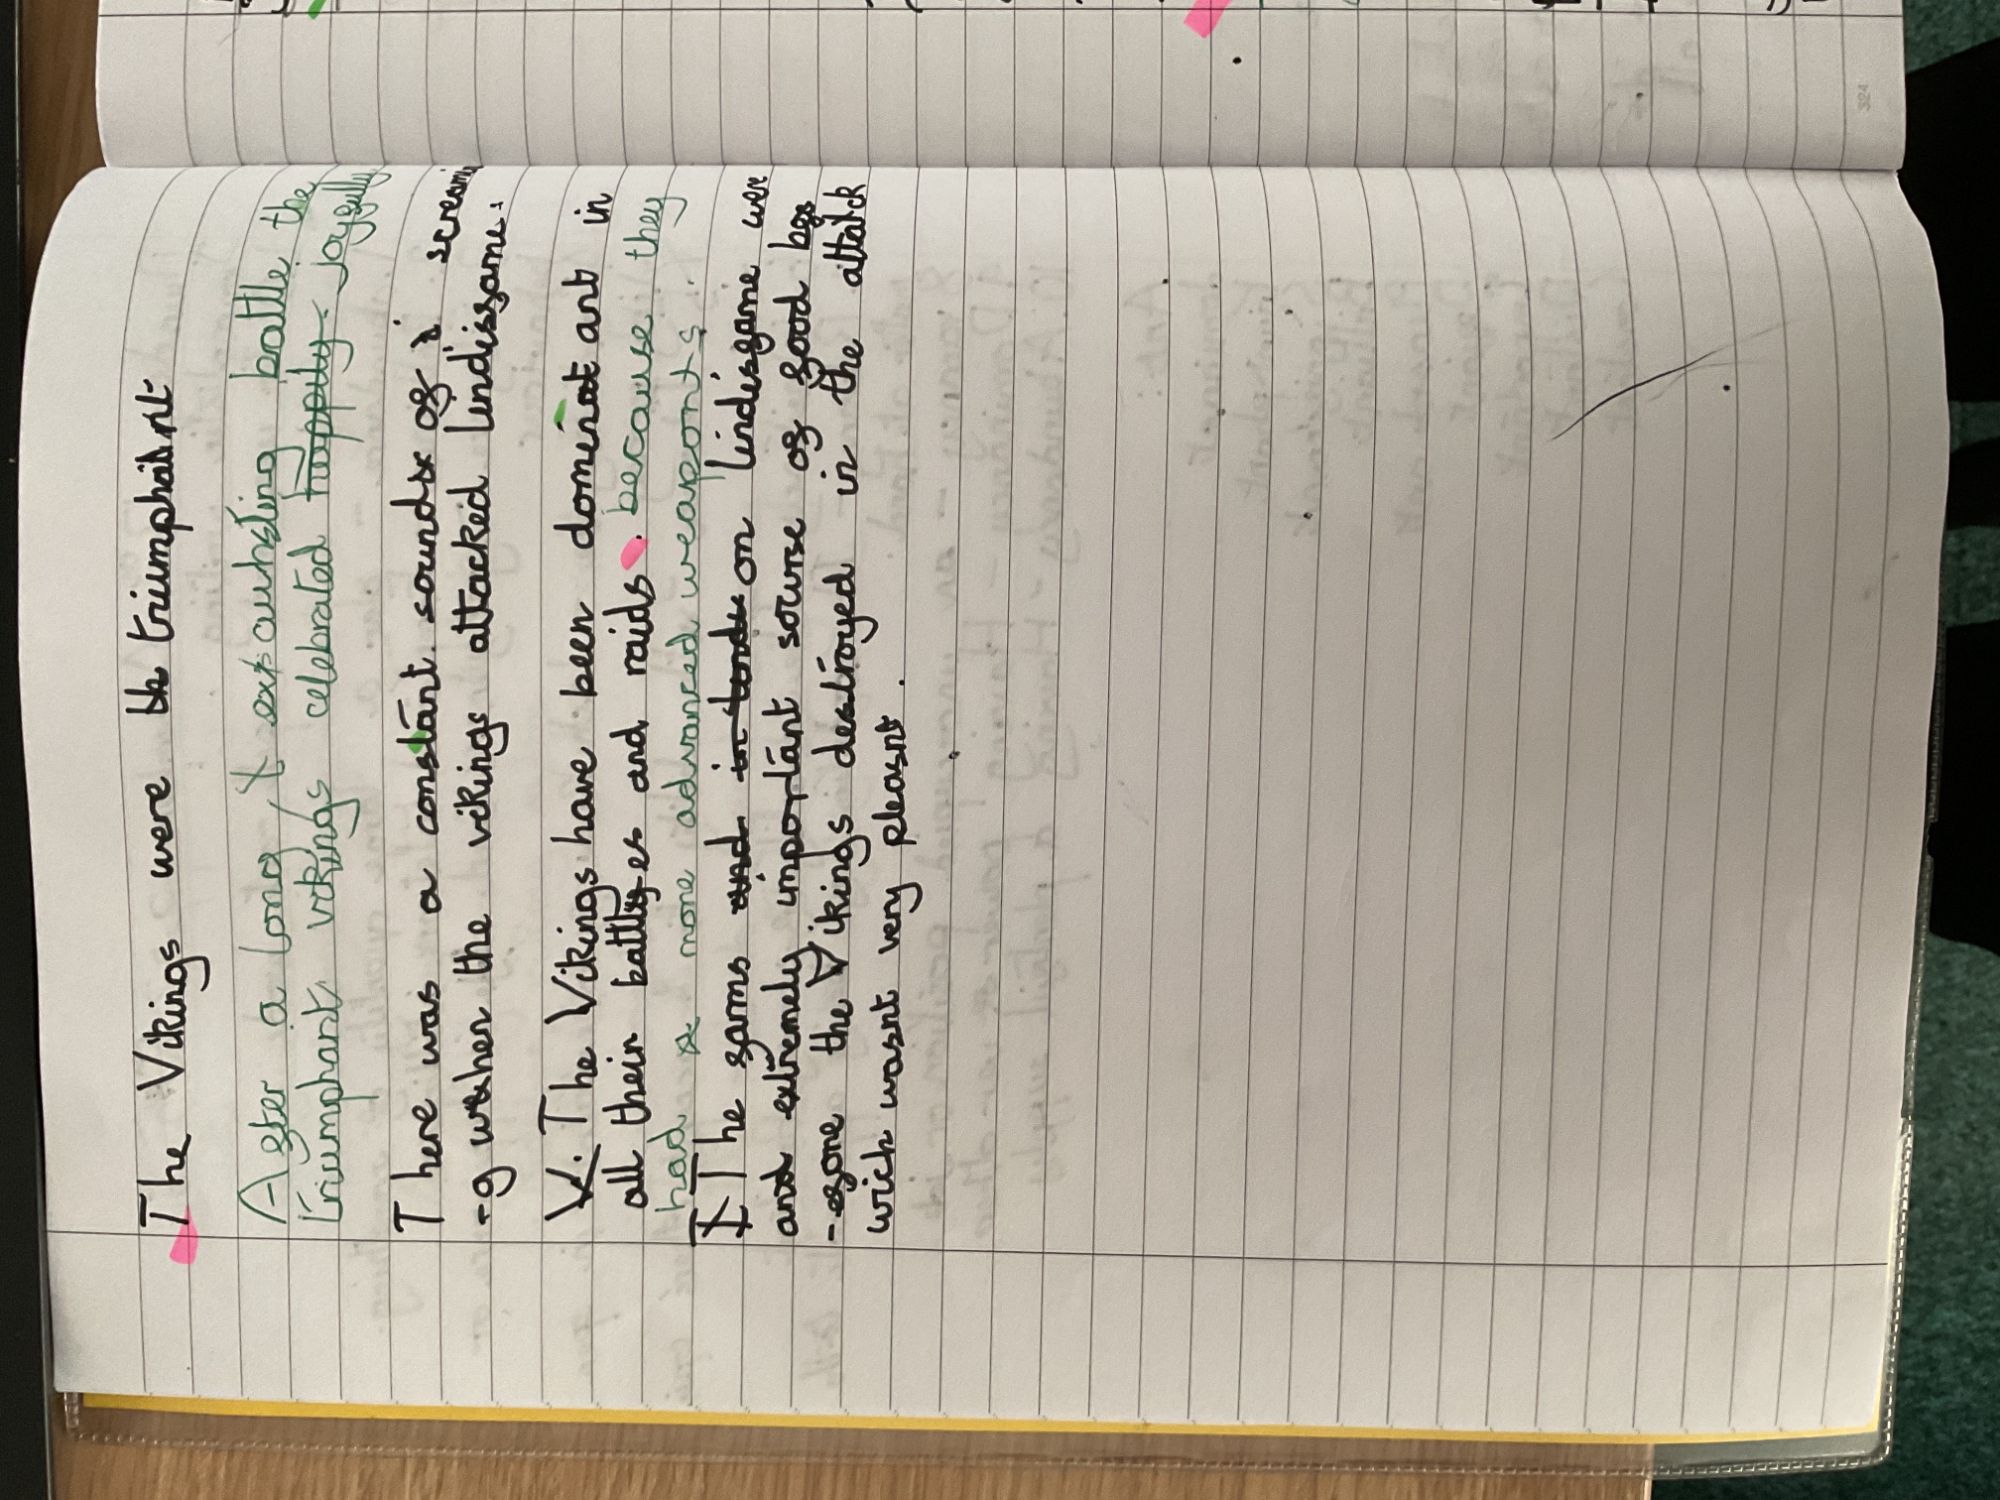 The Vikings were triumphant
After a long exauhsting battle the
triumphant vikings celebrated happily joyfully
There was a constant sounds of screami
-g when the vikings attacked lindisfarne.
The Vikings have been dominat ant in
all their battles and raids. because they
had a more advanced weaponts.
The farms and on lindisfarne were
and extremely important sourse of food bef
-efore the Vikings destroyed in the attack
wich wasnt very pleasnt.
324